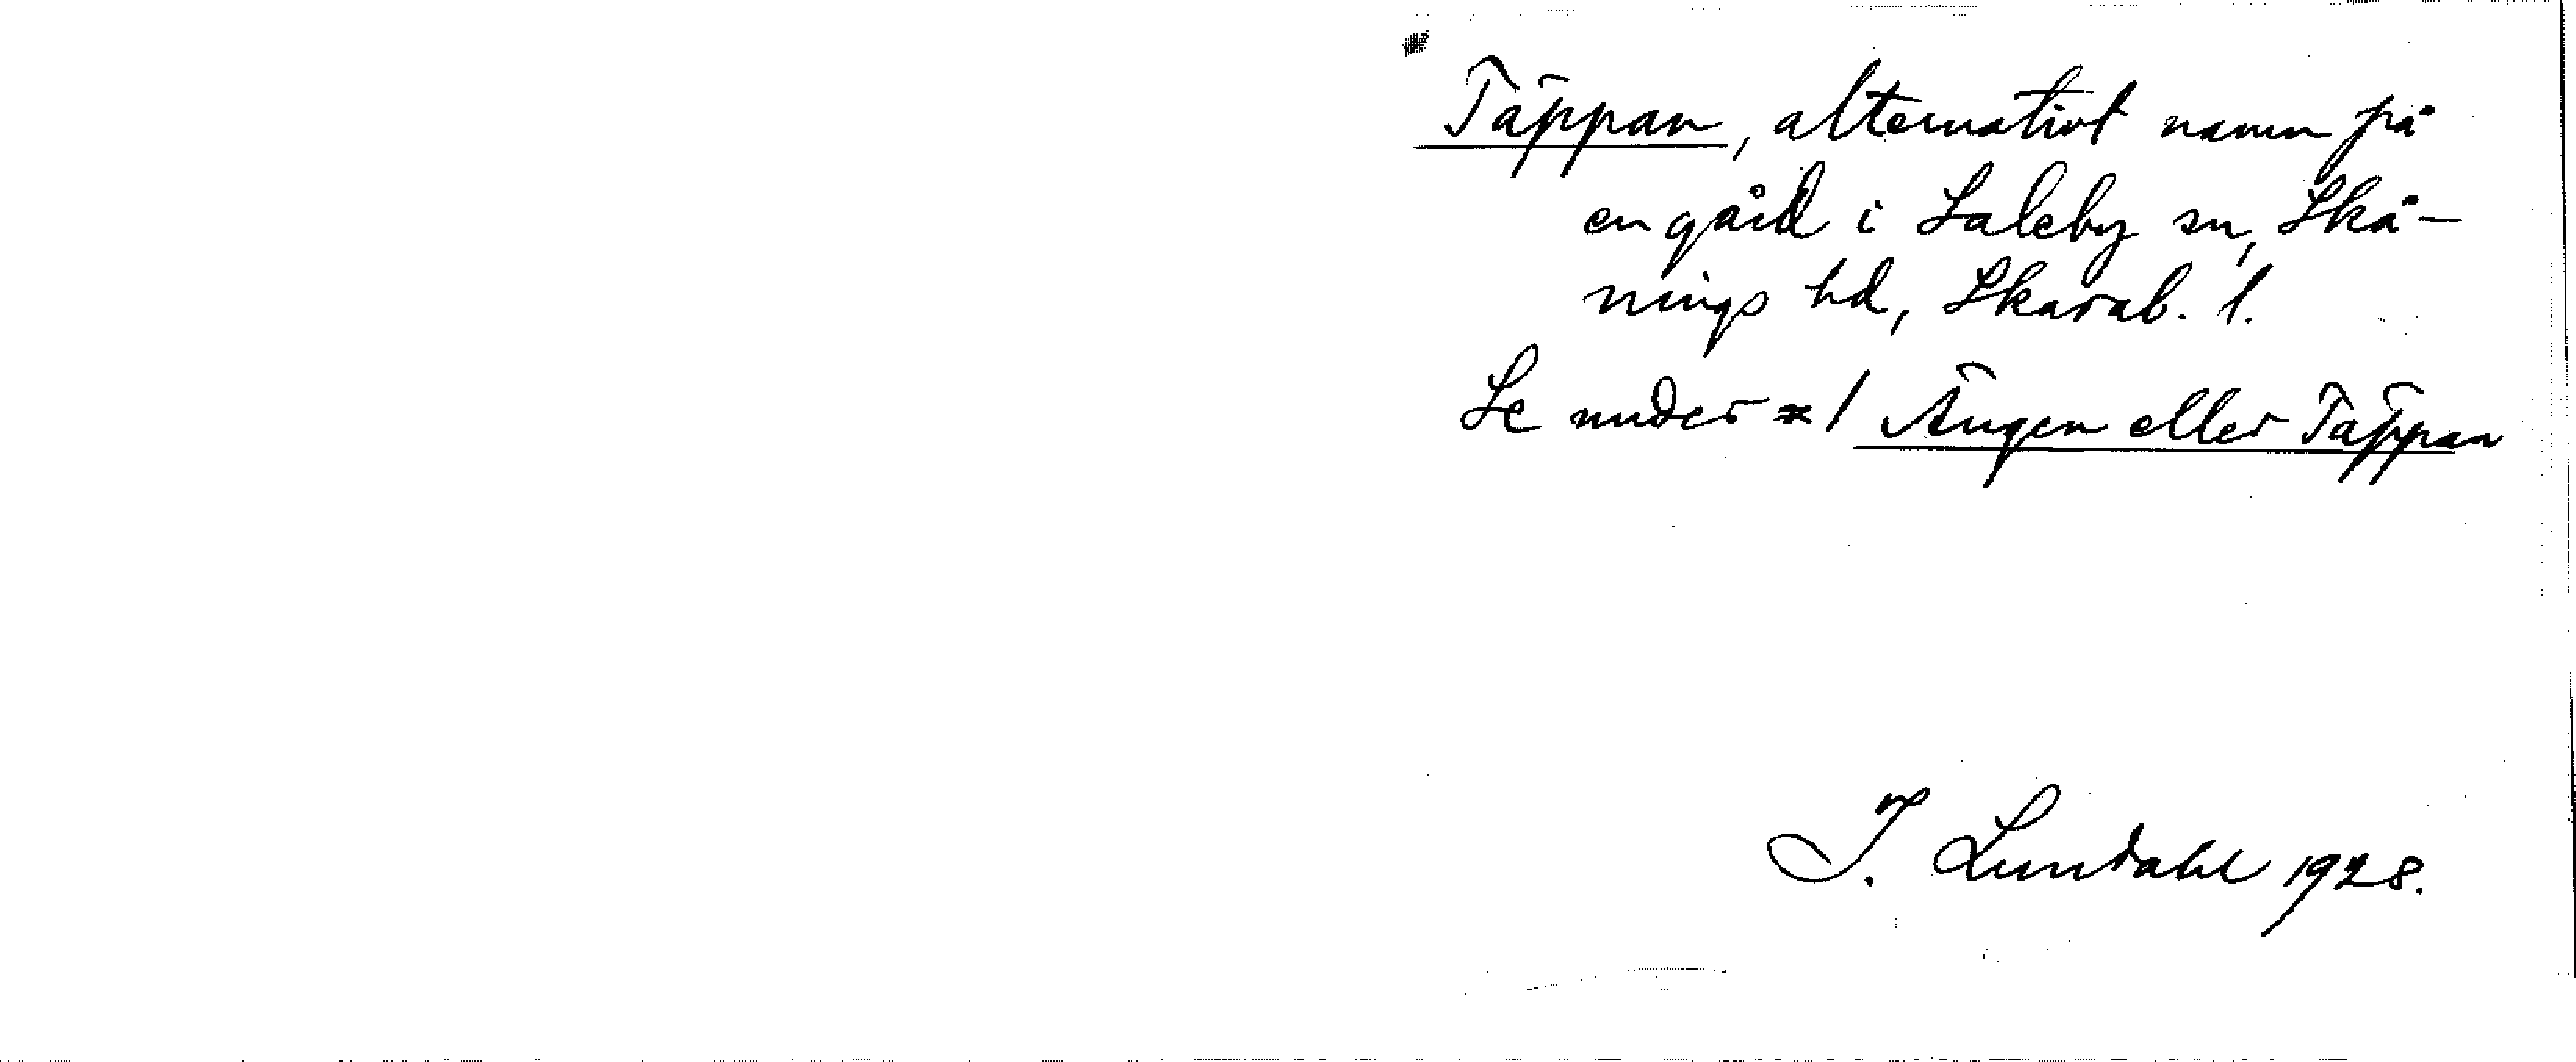 Täppan, alternativt namn på
en gård i Saleby sn, Skå-
nings hd, Skarab. l.
Se under * / Ängen eller Täppan
I. Lundahl 1928.